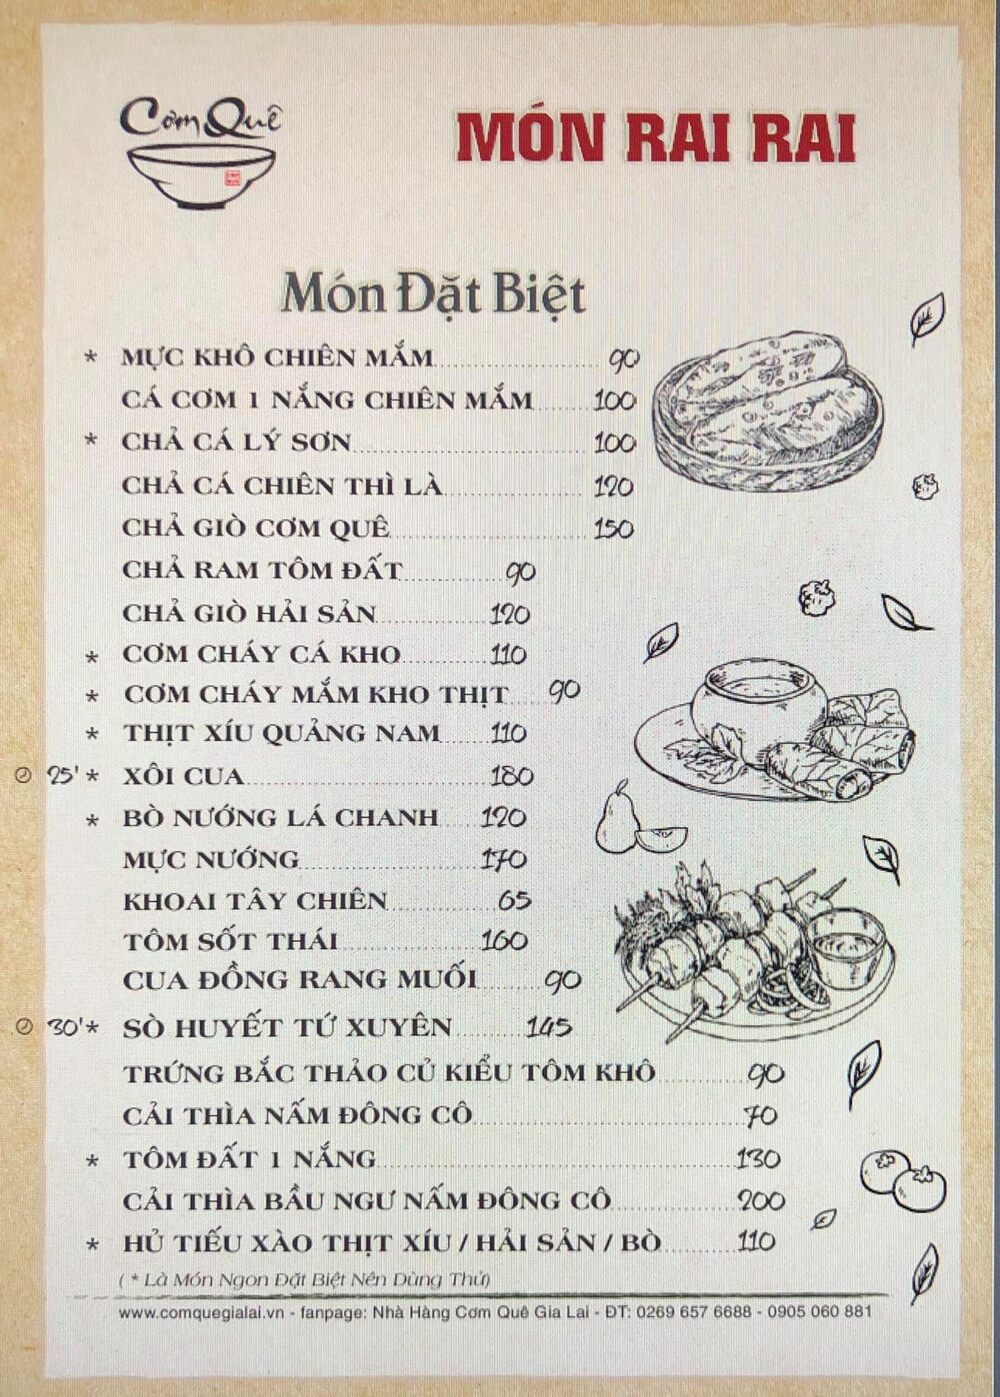 Cơm Quê
MÓN RAI RAI
Món Đặt Biệt
* MỰC KHÔ CHIÊN MẮM 90
CÁ CƠM 1 NẮNG CHIÊN MẮM 100
* CHẢ CÁ LÝ SƠN 100
CHẢ CÁ CHIÊN THÌ LÀ 120
CHẢ GIÒ CƠM QUÊ 150
CHẢ RAM TÔM ĐẤT 90
CHẢ GIÒ HẢI SẢN 120
* CƠM CHÁY CÁ KHO 110
* CƠM CHÁY MẮM KHO THỊT 90
* THỊT XÍU QUẢNG NAM 110
25' * XÔI CUA 180
* BÒ NƯỚNG LÁ CHANH 120
MỰC NƯỚNG 170
KHOAI TÂY CHIÊN 65
TÔM SỐT THÁI 160
CUA ĐỒNG RANG MUỐI 90
30' * SÒ HUYẾT TỨ XUYÊN 145
TRỨNG BẮC THẢO CỦ KIỂU TÔM KHÔ 90
CẢI THÌA NẤM ĐÔNG CÔ 70
* TÔM ĐẤT 1 NẮNG 130
CẢI THÌA BẦU NGƯ NẤM ĐÔNG CÔ 200
* HỦ TIẾU XÀO THỊT XÍU / HẢI SẢN / BÒ 110
( * Là Món Ngon Đặt Biệt Nên Dùng Thử)
www.comquegialai.vn - fanpage: Nhà Hàng Cơm Quê Gia Lai - ĐT: 0269 657 6688 - 0905 060 881